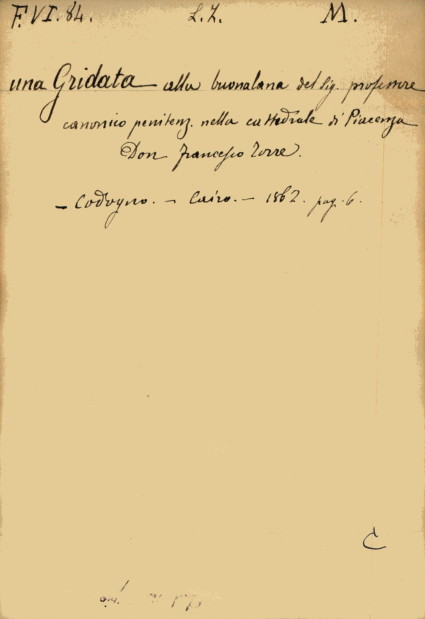 F.VI.84. L.Z. M.
una Gridata alla buonalana del Sig. professore
canonico penitenz. nella cattedrale di Piacenza
Don Francesco Torre.
– Codogno. – Cairo. – 1862. pag. 6.
C